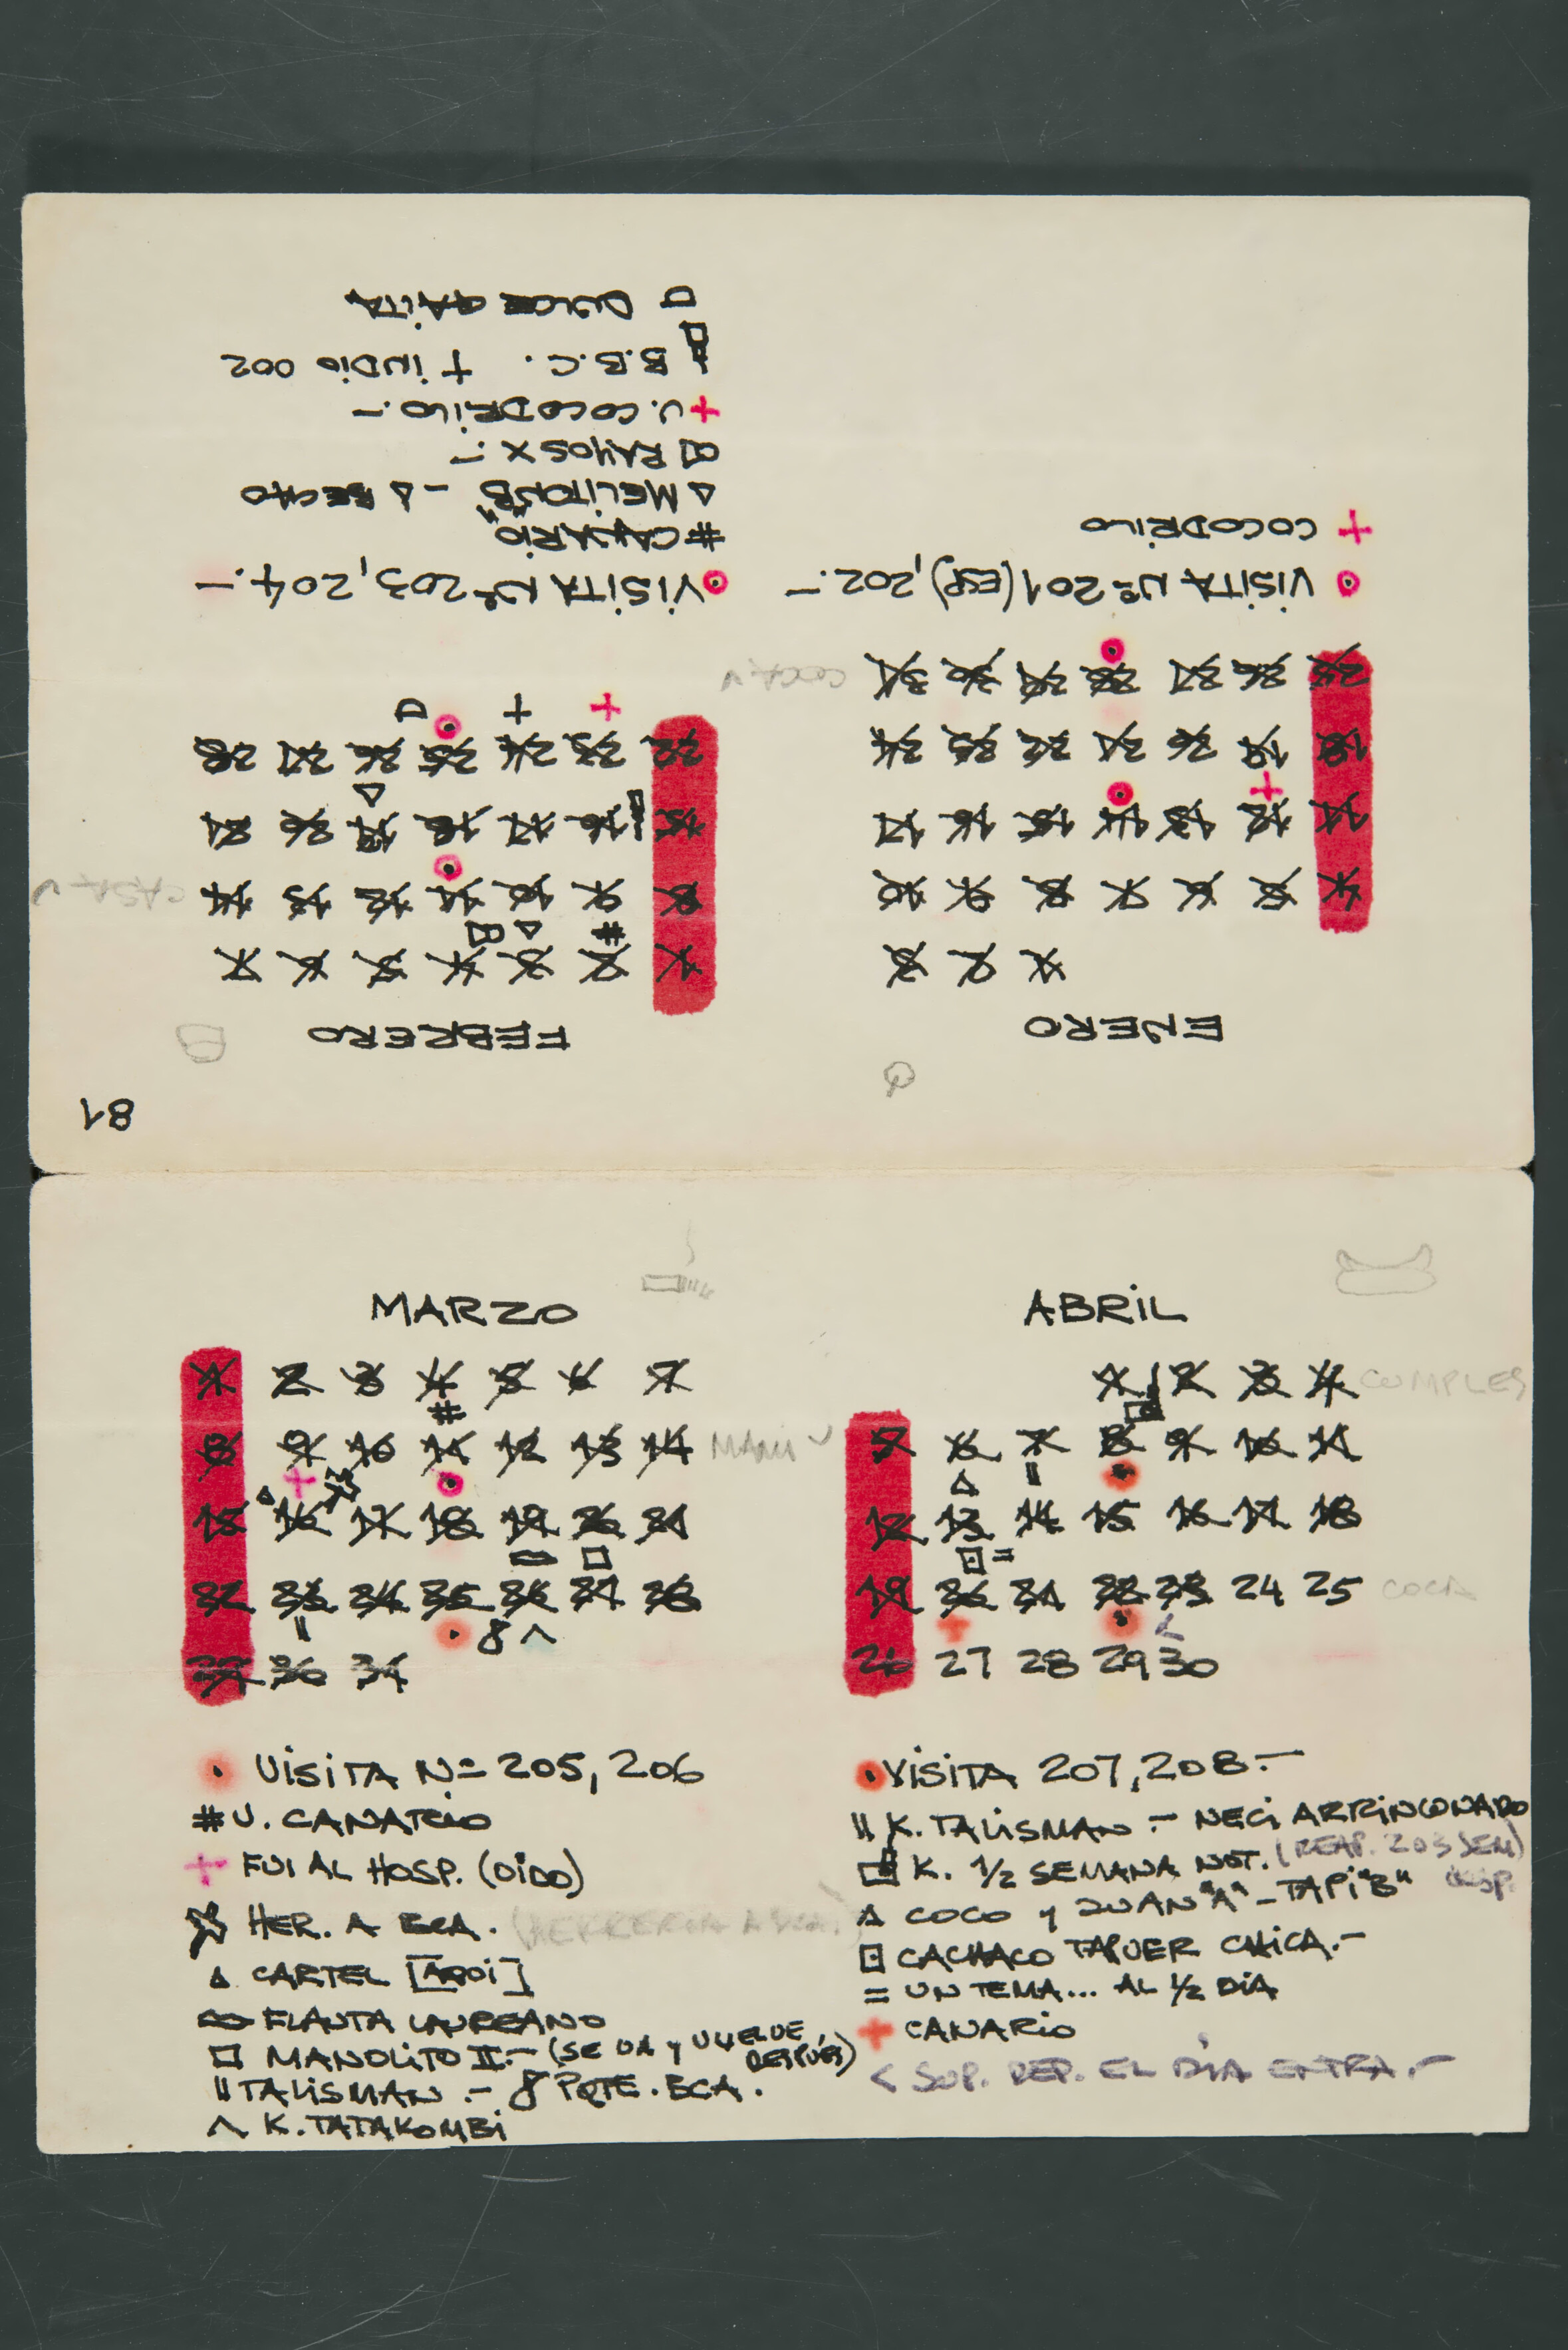 81
ENERO
1 2 3
4 5 6 7 8 9 10
11 12 13 14 15 16 17
18 19 20 21 22 23 24
25 26 27 28 29 30 31 COCA
VISITA Nº 201 (ESP), 202.-
+ COCODRILO
FEBRERO
1 2 3 4 5 6 7
8 9 10 11 12 13 14 CASA
15 16 17 18 19 20 21
22 23 24 25 26 27 28
VISITA Nº 203, 204.-
# CANARIO
△ MELITON "B" - △
RAYOS X.-
+ U. COCODRILO.-
B.B.C. + INDIO 002
MARZO
1 2 3 4 5 6 7
8 9 10 11 12 13 14 MAMI
15 16 17 18 19 20 21
22 23 24 25 26 27 28
29 30 31
VISITA Nº 205, 206
# U. CANARIO
+ FUI AL HOSP. (OIDO)
HER. A BCA. (HERRERIA A BCA.)
△ CARTEL
FLAUTA LAUREANO
□ MANOLITO II.- (SE VA Y VUELVE DESPUÉS)
" TALISMAN.- 8 PQTE. BCA.
^ K. TATAKOMBI
ABRIL
1 2 3 4 CUMPLES
5 6 7 8 9 10 11
12 13 14 15 16 17 18
19 20 21 22 23 24 25 COCA
26 27 28 29 30
VISITA 207, 208.-
" K. TALISMAN.- NECI ARRINCONADO
K. 1/2 SEMANA NOT. (REAP. 2 O 3 SEM) DESP.
△ COCO Y JUAN "A" - TAPI "B"
CACHACO TAPUER CHICA.-
= UN TEMA... AL 1/2 DIA
+ CANARIO
< SUP. REP. EL DIA ENTRA.-